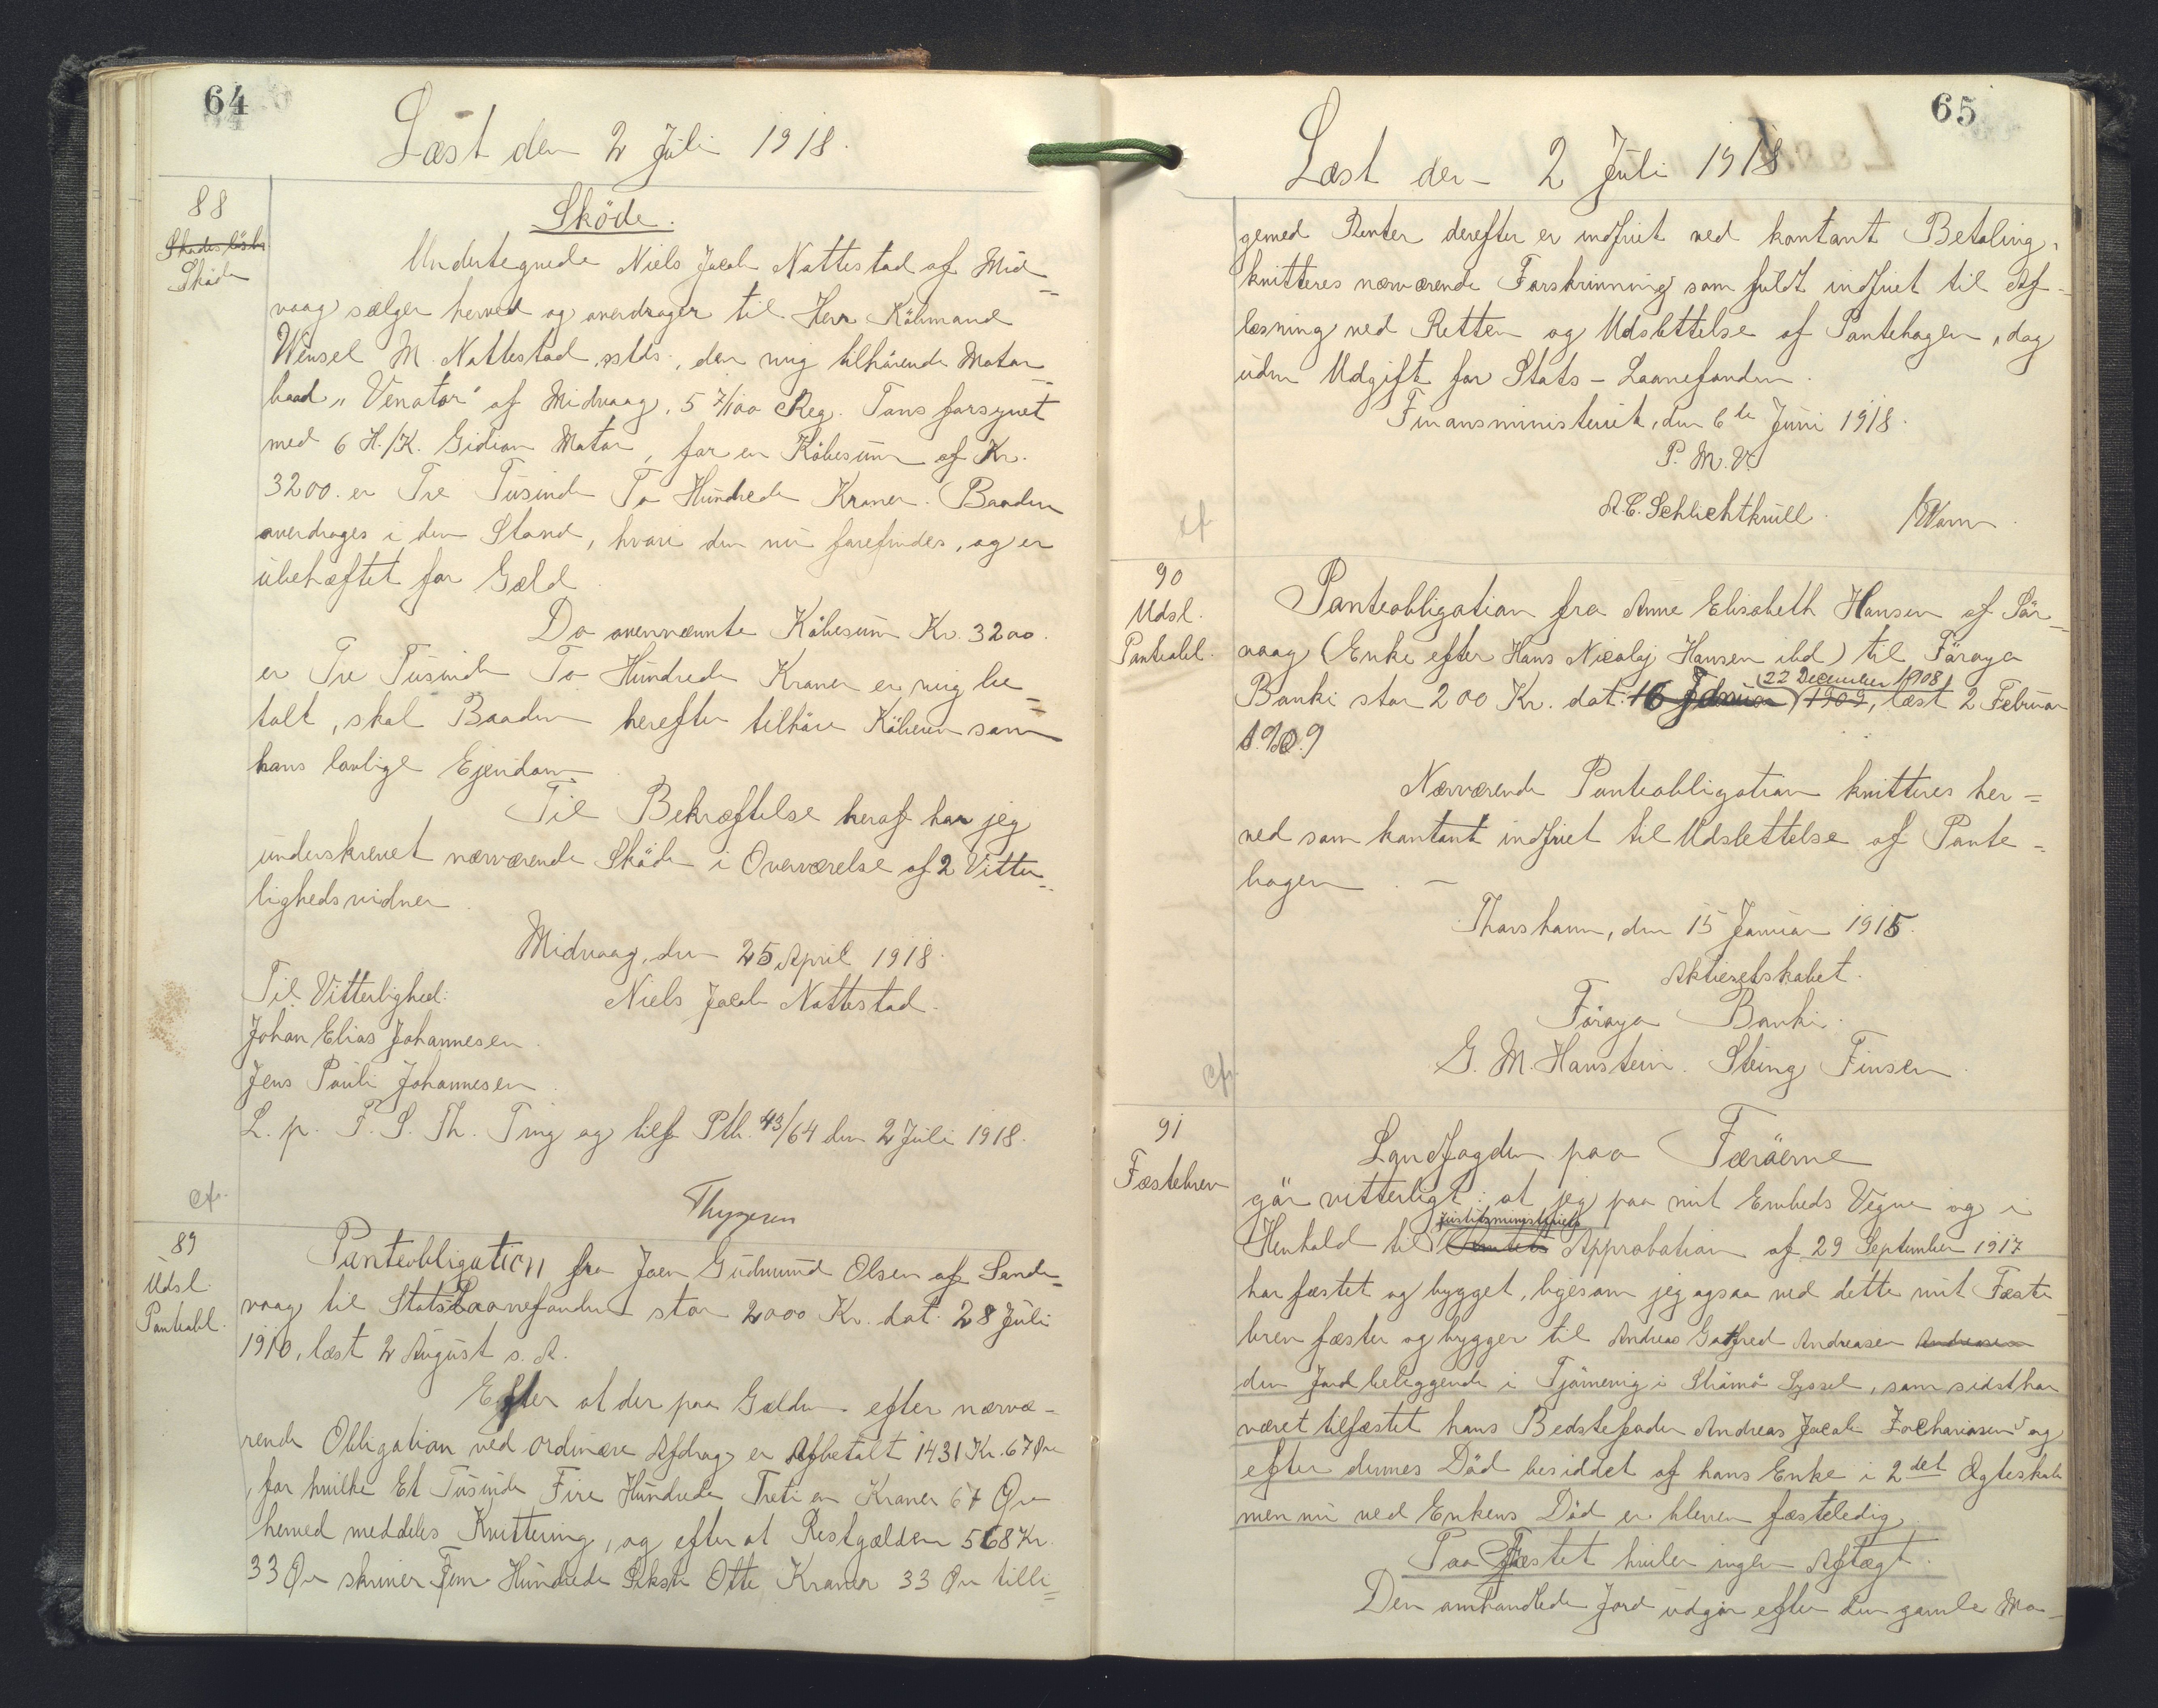 64
Læst den 2 Juli 1918.
88
Skadeslösbr
Sköde
Sköde.
Undertegnede Niels Jacob Nattestad af Mid=
vaag sælger herved og overdrager til Herr Köbmand
Wensel M. Nattestad sstds., den mig tilhörende Motor=
baad „Venator" af Midvaag, 5 7/100 Reg. Tons forsynet
med 6 H./K. Gidion Motor, for en Köbesum af Kr.
3200. er Tre Tusinde To Hundrede Kroner. Baaden
overdrages i den Stand, hvori den nu forefindes, og er
ubehæftet for Gæld.
Da ovennævnte Köbesum Kr. 3200.
er Tre Tusinde To Hundrede Kroner er mig be=
talt, skal Baaden herefter tilhöre Köberen som
hans lovlige Ejendom.
Til Bekræftelse heraf har jeg
underskrevet nærværende Sköde i Overværelse af 2 Vitter=
lighedsvidner.
Midvaag, den 25 April 1918.
Til Vitterlighed: Niels Jacob Nattestad.
Johan Elias Johannesen.
Jens Pauli Johannesen.
L. p. F. S. Th. Ting og tilf Ptb. 43/64 den 2 Juli 1918.
cf.
Thygesen
89
Udsl.
Panteobl.
Panteobligation fra Joen Gudmund Olsen af Sande=
vaag til Stats Laanefonden stor 2000 Kr. dat. 28 Juli
1910, læst 2 August s. A.
Efter at der paa Gælden efter nærvæ=
rende Obligation ved ordinære Afdrag er Afbetalt 1431 Kr. 67 Øre
, for hvilke Et Tusinde Fire Hundrede Treti en Kroner 67 Øre
herved meddeles Kvittering, og efter at Restgælden 568 Kr.
33 Øre skriver Fem Hundrede Seksti Otte Kroner 33 Øre tilli=
65
Læst den 2 Juli 1918
gemed Renter derefter er indfriet ved kontant Betaling,
kvitteres nærværende Forskrivning som fuldt indfriet til Af=
læsning ved Retten og Udslettelse af Pantebogen, dog
uden Udgift for Stats-Laanefonden.
Finansministeriet, den 6te Juni 1918.
P. M. V.
A. C. Schlichtkrull. /Worm.
cf
90
Udsl.
Panteobl.
Panteobligation fra Anne Elisabeth Hansen af Sör=
vaag (Enke efter Hans Nicolaj Hansen ibd) til Föroya
22 December 1908
Banki stor 200 Kr. dat. 16 Februar 1909, læst 2 Februar
1909
Nærværende Panteobligation kvitteres her=
ved som kontant indfriet til Udslettelse af Pante=
bogen. —
Thorshavn, den 15 Januar 1915.
Aktieselskabet.
Föroya Banki.
G. M. Hanstein. Steing Finsen.
cf.
91
Fæstebrev
Landfogden paa Færöerne
gör vitterligt: at jeg paa mit Embeds Vegne og i
justitsministeriets
Henhold til Amtets Approbation af 29 September 1917
har fæstet og bygget, ligesom jeg ogsaa ved dette mit Fæste
brev fæster og bygger til Andreas Gotfred Andreasen Andreasen
den Jord beliggende i Tjörnevig i Strömö Syssel, som sidst har
været tilfæstet hans Bedstefader Andreas Jacob Zachariasen og
efter dennes Död besiddet af hans Enke i 2det Ægteskab
men nu ved Enkens Död er bleven fæsteledig.
Paa Fæstet hviler ingen Aftægt.
Den omhandlede Jord udgör efter den gamle Ma=